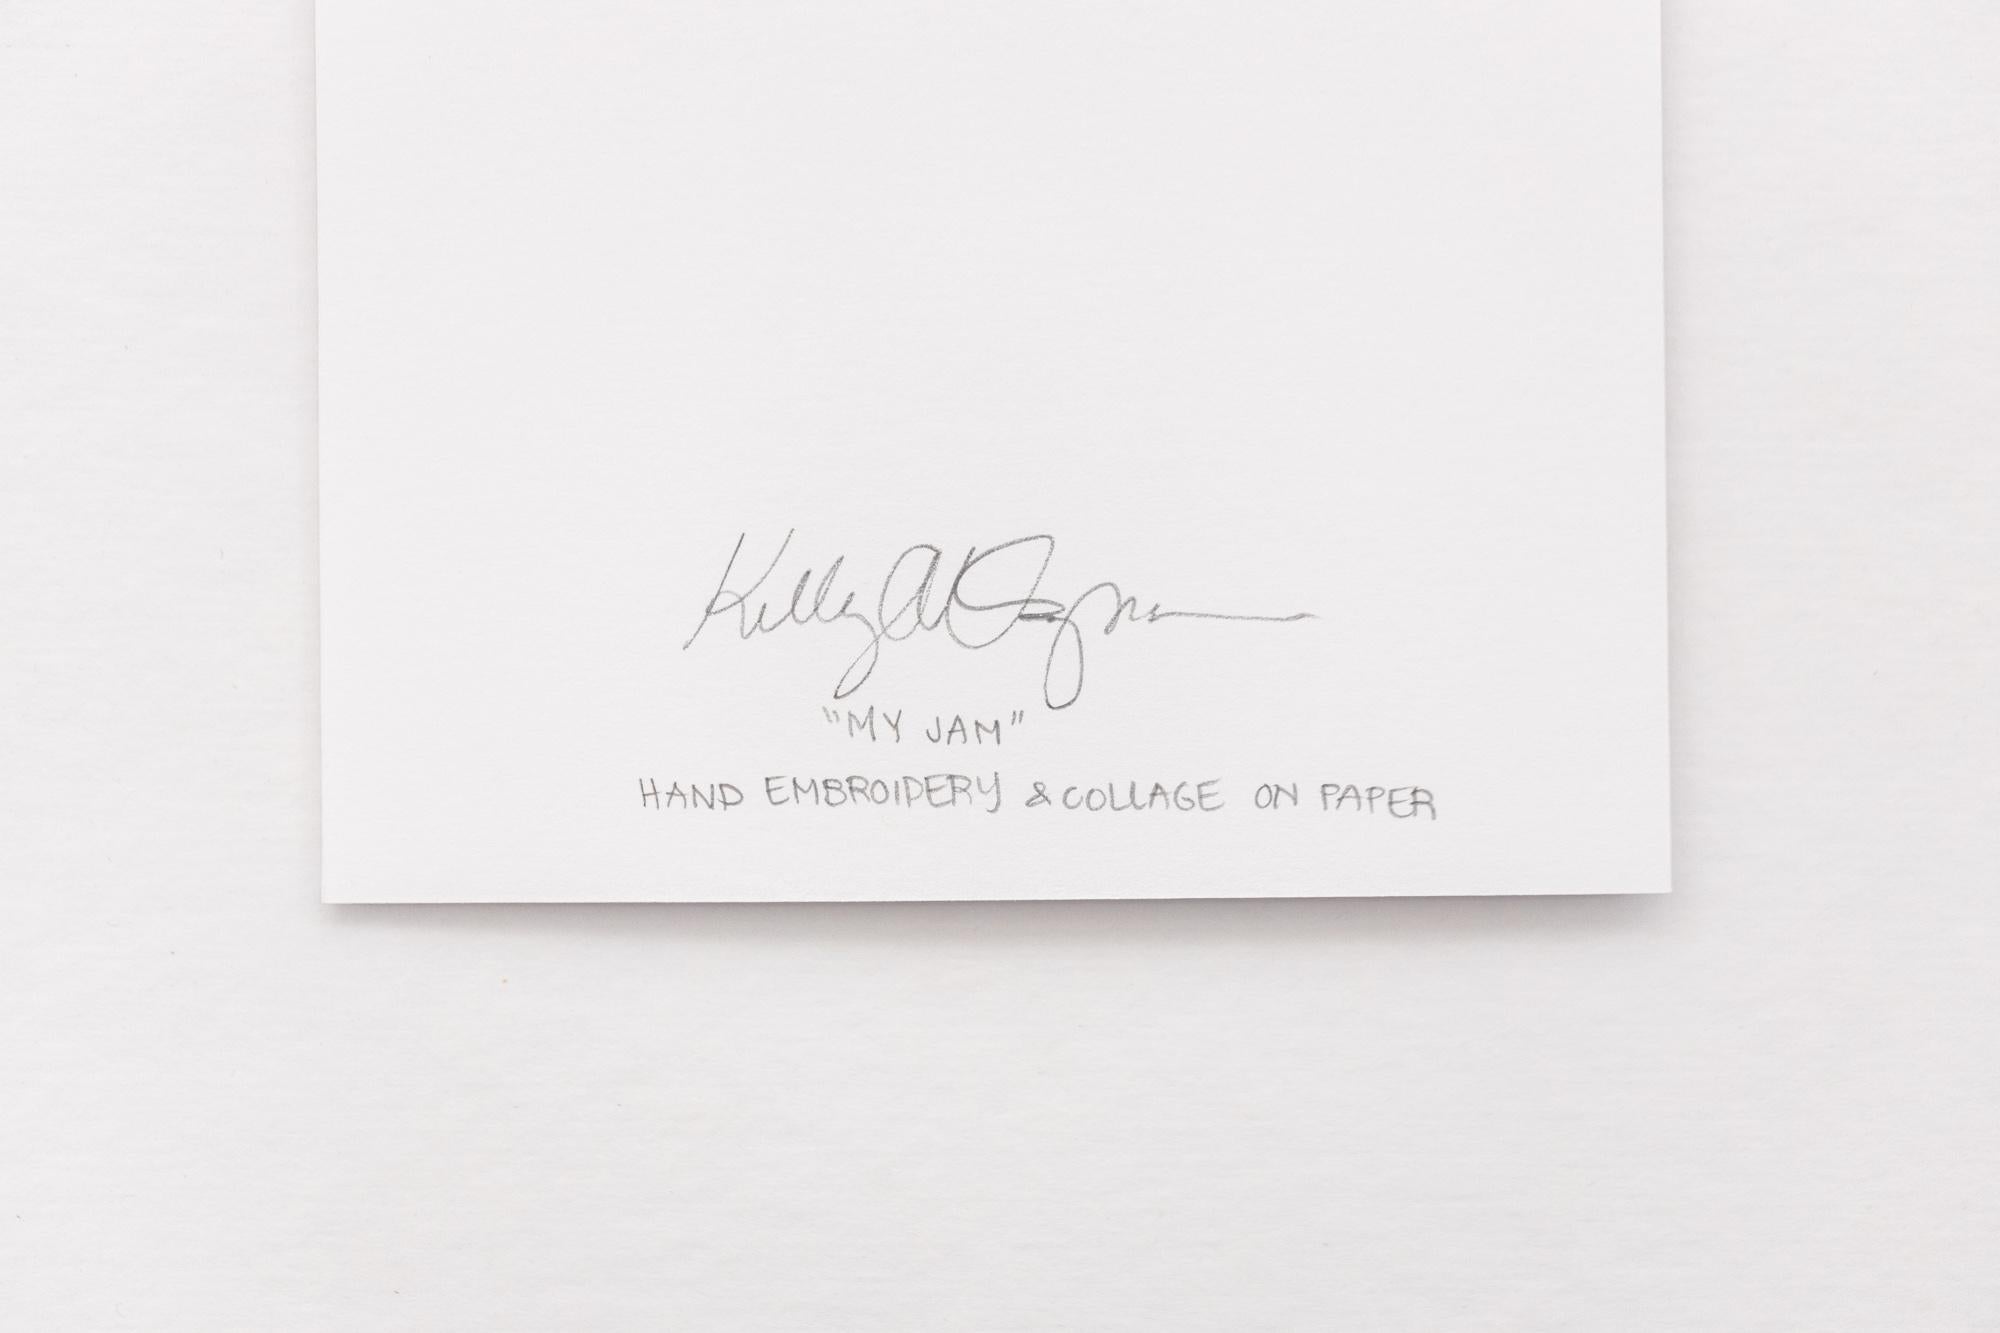 Kelly
"MY JAM"
HAND EMBROIDERY & COLLAGE ON PAPER